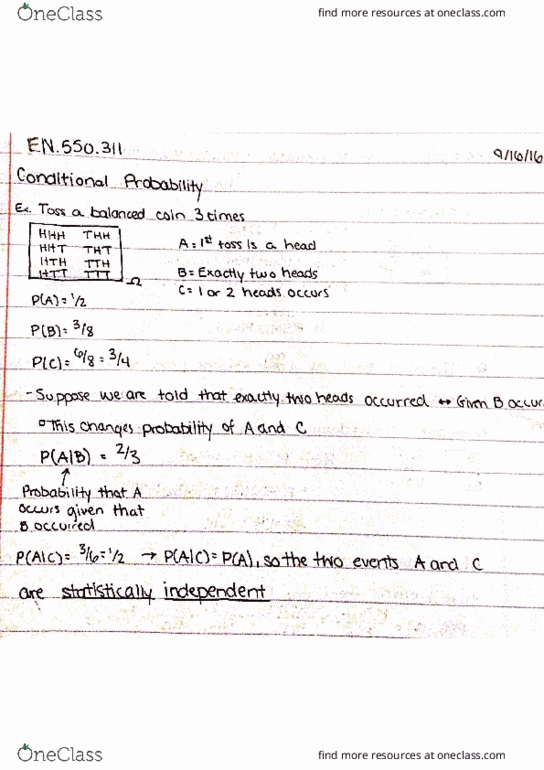 OneClass
find more resources at oneclass.com
EN.550.311
9/16/16
Conditional Probability
Ex. Toss a balanced coin 3 times
HHH THH
HHT THT
HTH TTH
HTT TTT
Ω
A = 1st toss is a head
B = Exactly two heads
C = 1 or 2 heads occurs
P(A) = 1/2
P(B) = 3/8
P(C) = 6/8 = 3/4
- Suppose we are told that exactly two heads occurred ↔ Given B occur
▫ This changes probability of A and C
P(A|B) = 2/3
↑
Probability that A
occurs given that
B occurred
P(A|C) = 3/6 = 1/2 → P(A|C) = P(A), so the two events A and C
are statistically independent
OneClass
find more resources at oneclass.com